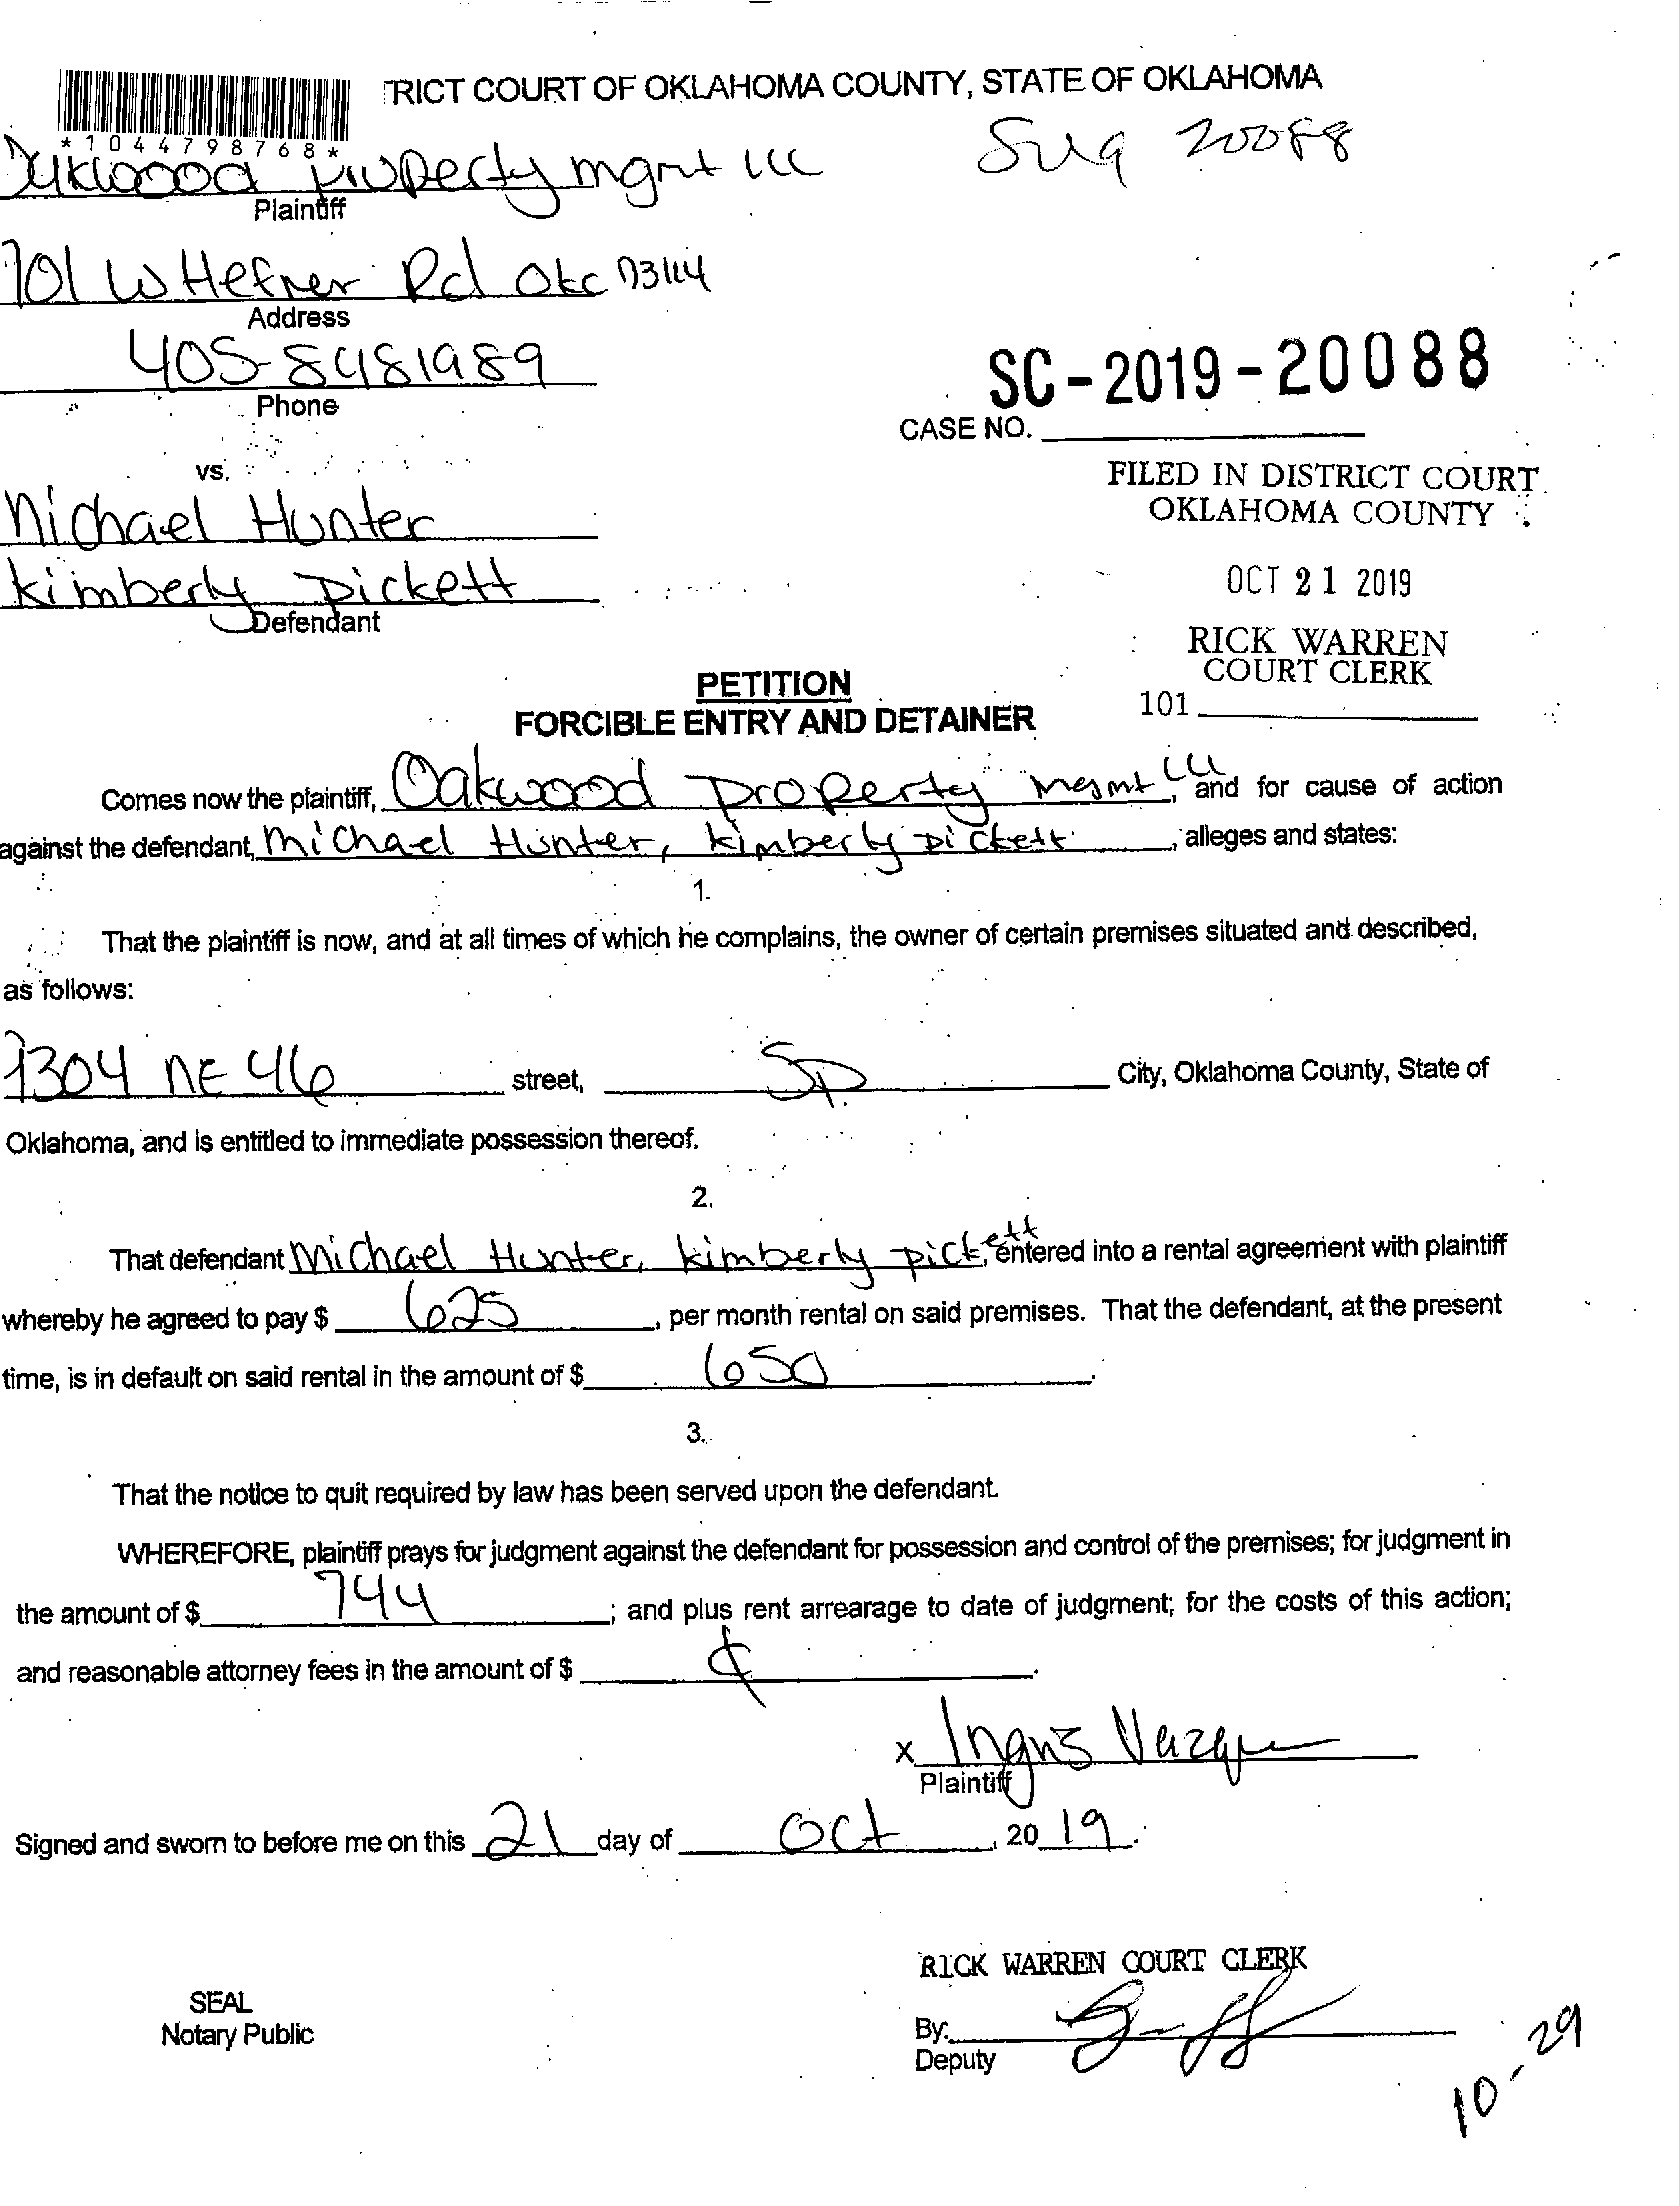 RICT COURT OF OKLAHOMA COUNTY, STATE OF OKLAHOMA
*1044798768*
Property mgmt LLC 20088
Plaintiff
701 W Hefner Rd OKC 73114
Address
405-8481989
Phone
SC-2019-20088
CASE NO.
vs.
FILED IN DISTRICT COURT
OKLAHOMA COUNTY
Michael Hunter
Kimberly Pickett
Defendant
OCT 21 2019
RICK WARREN
COURT CLERK
101
PETITION
FORCIBLE ENTRY AND DETAINER
Comes now the plaintiff, Oakwood Property Mgmt, LLC and for cause of action
against the defendant, Michael Hunter, Kimberly Pickett, alleges and states:
1.
That the plaintiff is now, and at all times of which he complains, the owner of certain premises situated and described,
as follows:
1304 NE 46 street, SP City, Oklahoma County, State of
Oklahoma, and is entitled to immediate possession thereof.
2.
That defendant Michael Hunter, Kimberly Pickett, entered into a rental agreement with plaintiff
whereby he agreed to pay $ 625, per month rental on said premises. That the defendant, at the present
time, is in default on said rental in the amount of $ 650.
3.
That the notice to quit required by law has been served upon the defendant.
WHEREFORE, plaintiff prays for judgment against the defendant for possession and control of the premises; for judgment in
the amount of $ 744; and plus rent arrearage to date of judgment; for the costs of this action;
and reasonable attorney fees in the amount of $
x
Plaintiff
Signed and sworn to before me on this 21 day of Oct, 20 19.
RICK WARREN COURT CLERK
SEAL
Notary Public
By:
Deputy
10-29